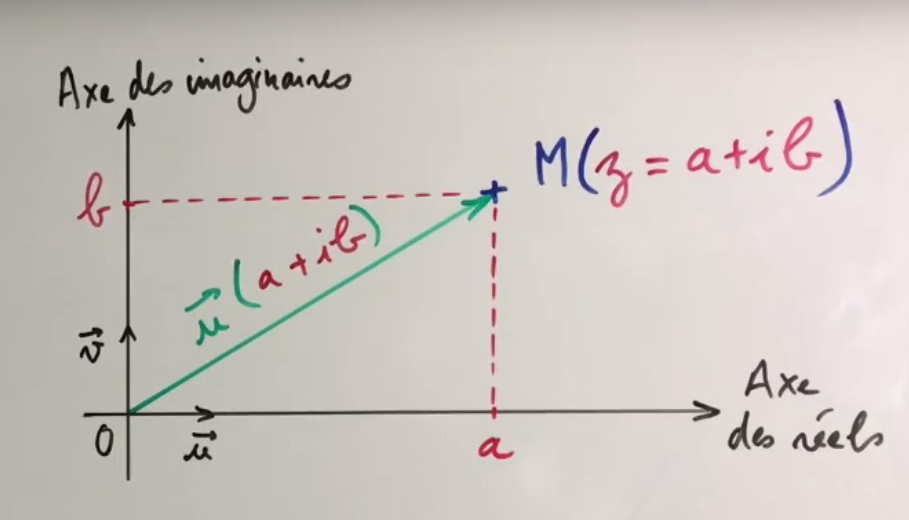 Axe des imaginaires
b
M(z = a+ib)
u⃗(a+ib)
v⃗
0
u⃗
a
Axe
des réels